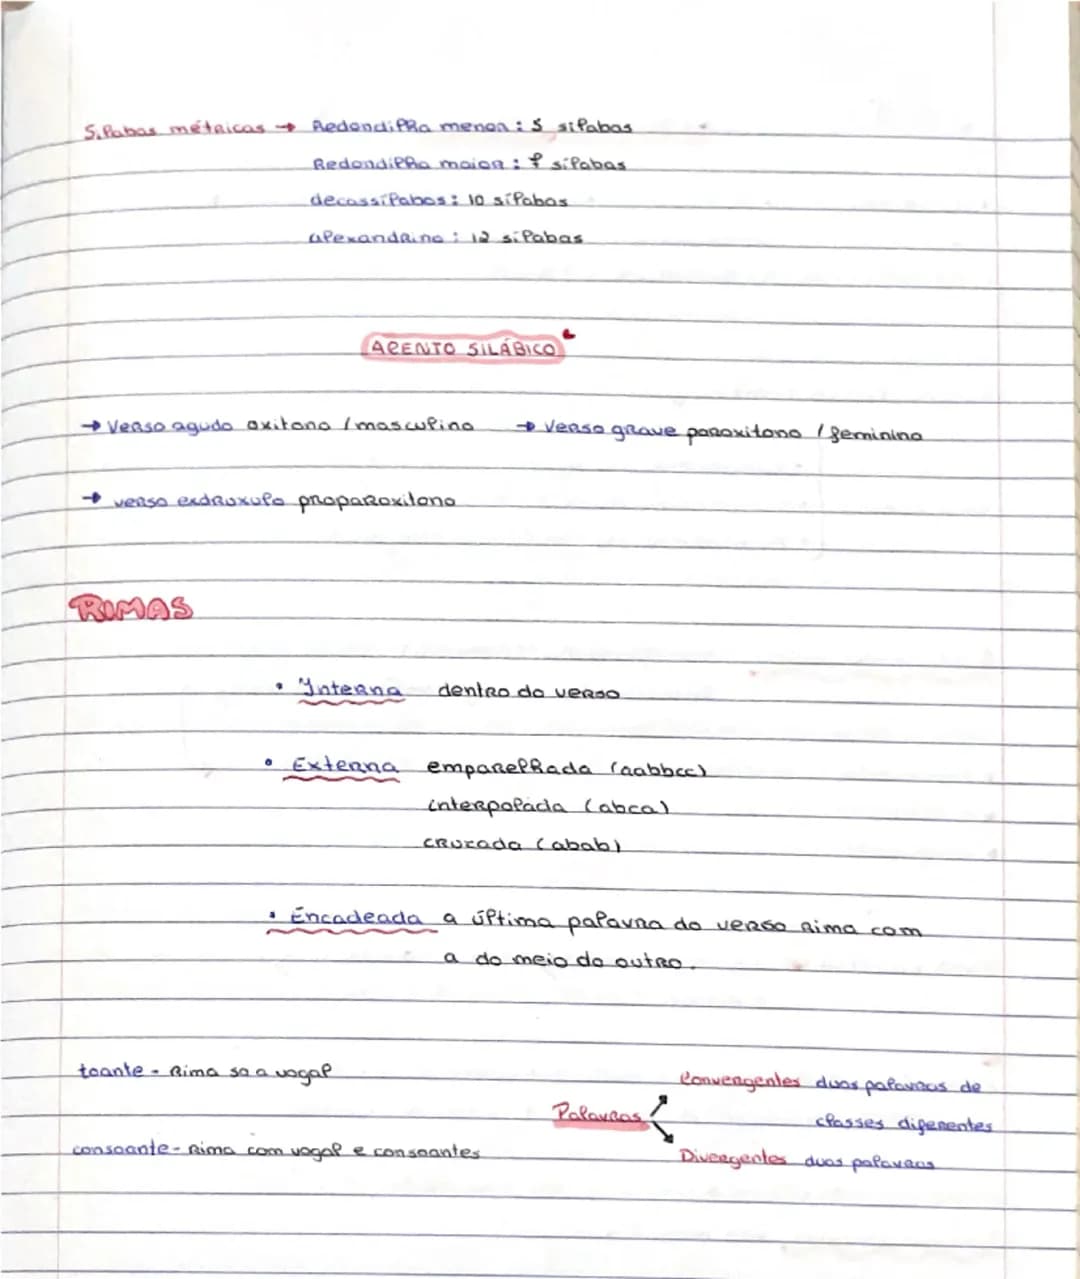 Sílabas métricas → Redondilha menor : 5 sílabas
Redondilha maior : 7 sílabas
decassílabos : 10 sílabas
alexandrino : 12 sílabas
ACENTO SILÁBICO
→ Verso agudo oxitono / masculino → Verso grave paroxitono / feminino
→ verso exdruxulo proparoxitono
RIMAS
• Interna dentro do verso
• Externa emparelhada (aabbcc)
interpolada (abca)
cruzada (abab)
• Encadeada a última palavra do verso rima com
a do meio do outro.
toante - Rima so a vogal
consoante - Rima com vogal e consoantes
Palavras
Convergentes duas palavras de
classes diferentes
Divergentes duas palavras